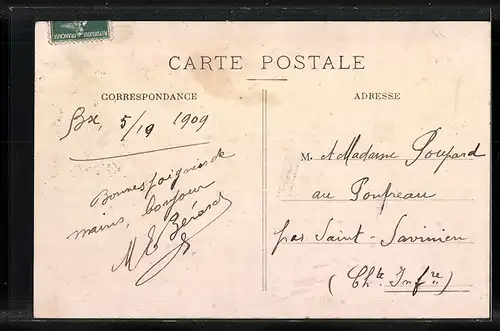 REPUBLIQUE FRANÇAISE
CARTE POSTALE
CORRESPONDANCE
ADRESSE
Bx, 5/19 1909
Bonnes poignées de
mains, bonjour
M E Bérard
M. et Madame Poupard
au Poupreau
par Saint-Savinien
(Chte Infre)